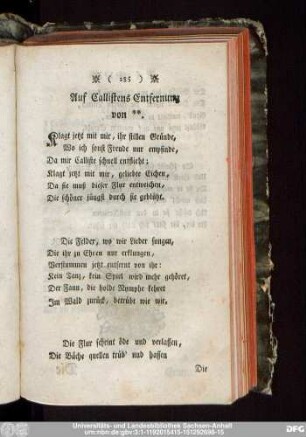 ( 285 )
Auf Callistens Entfernung
von **.
Klagt jetzt mit mir, ihr stillen Gründe,
Wo ich sonst Freude nur empfinde,
Da mir Calliste schnell entflieht;
Klagt jetzt mit mir, geliebte Eichen,
Da sie muß dieser Flur entweichen,
Die schöner jüngst durch sie geblüht.
Die Felder, wo wir Lieder sungen,
Die ihr zu Ehren nur erklungen,
Verstummen jetzt entfernt von ihr:
Kein Tanz, kein Spiel wird mehr gehöret,
Der Faun, die holde Nymphe kehret
Im Wald zurück, betrübt wie wir.
Die Flur scheint öde und verlassen,
Die Bäche quellen trüb' und hassen
Die
Universitäts- und Landesbibliothek Sachsen-Anhalt
urn:nbn:de:gbv:3:1-1192015415-151262698-15
DFG